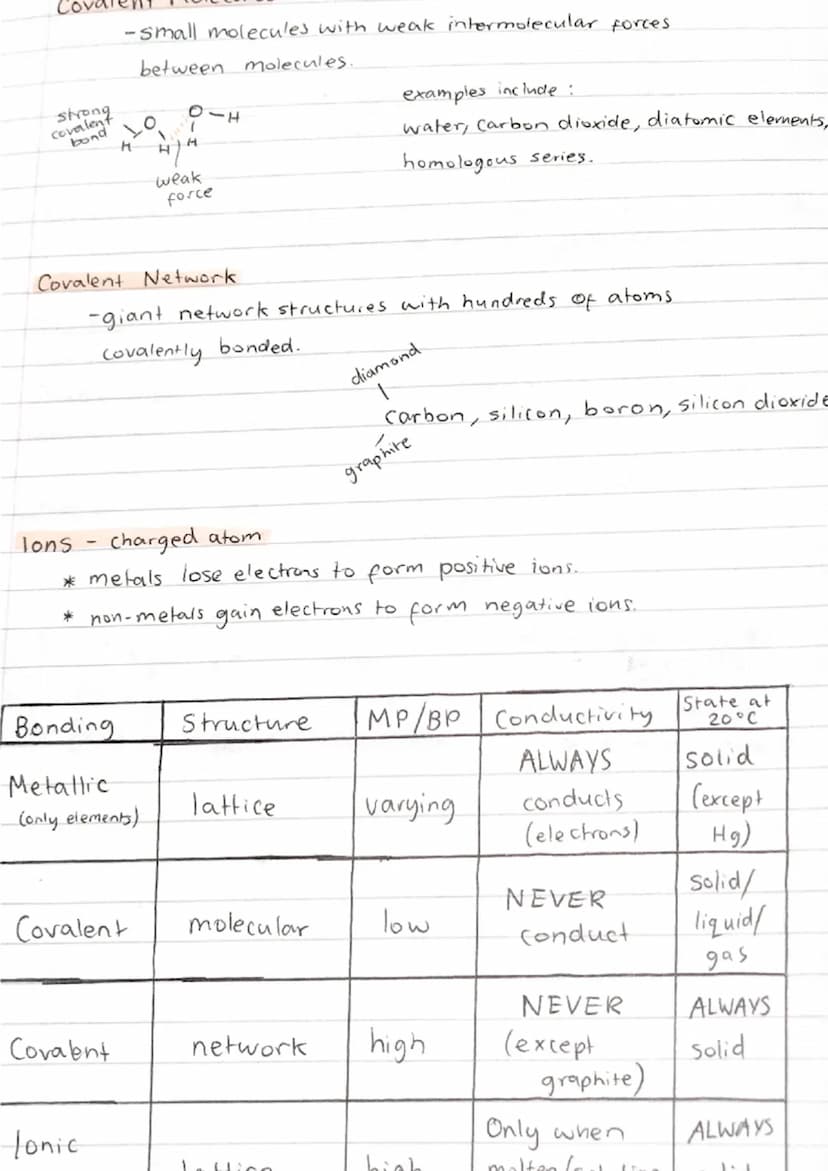 Covalent Molecules
-small molecules with weak intermolecular forces
between molecules.
examples include :
water, carbon dioxide, diatomic elements,
homologous series.
strong
covalent
bond
O O-H
H H H
weak
force
Covalent Network
-giant network structures with hundreds of atoms
covalently bonded.
diamond
carbon, silicon, boron, silicon dioxide
graphite
Ions - charged atom
* metals lose electrons to form positive ions.
* non-metals gain electrons to form negative ions.
Bonding Structure MP/BP Conductivity State at 20°C
Metallic (only elements) lattice varying ALWAYS conducts (electrons) solid (except Hg)
Covalent molecular low NEVER conduct solid/ liquid/ gas
Covalent network high NEVER (except graphite) ALWAYS solid
Ionic lattice high Only when molten/ ALWAYS